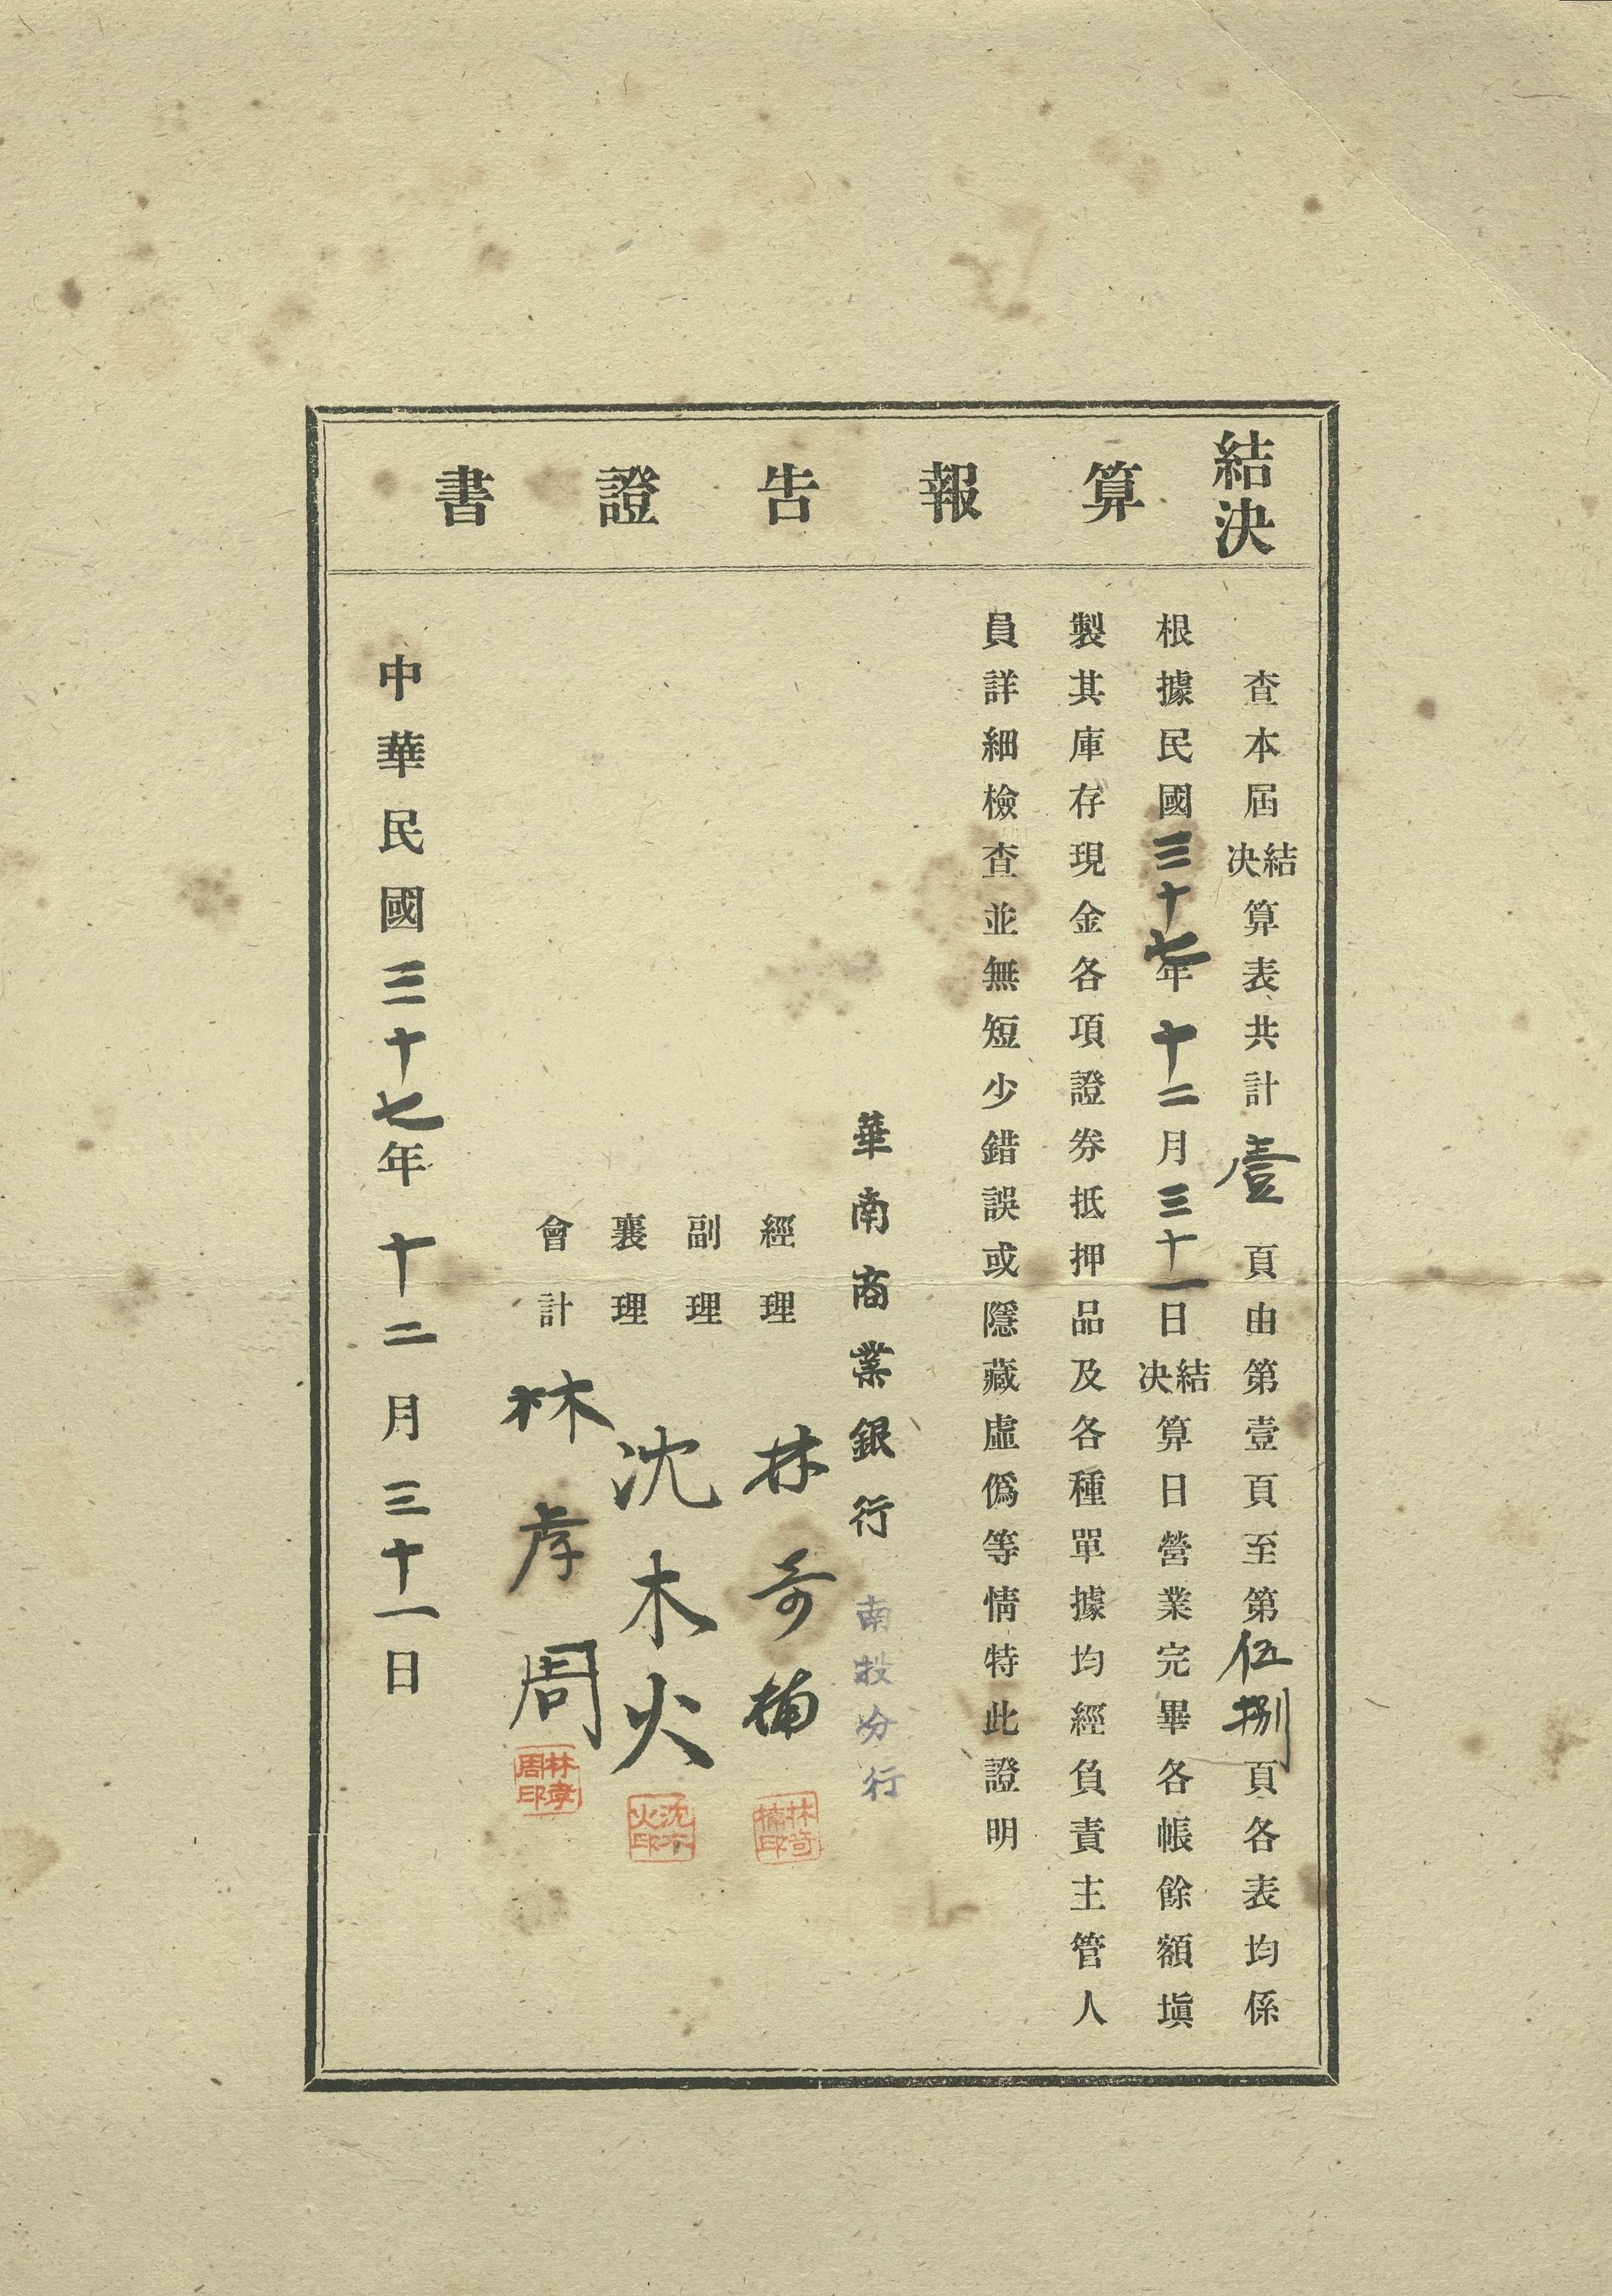 結決算報告證書
查本屆結決算表共計壹頁由第壹頁至第伍捌頁各表均係
根據民國三十七年十二月三十一日結決算日營業完畢各帳餘額塡
製其庫存現金各項證券抵押品及各種單據均經負責主管人
員詳細檢查並無短少錯誤或隱藏虛僞等情特此證明
華南商業銀行 南投分行
經理 林奇楠
副理
襄理 沈木火
會計 林孝周
林奇楠印
沈木火印
林孝周印
中華民國三十七年十二月三十一日